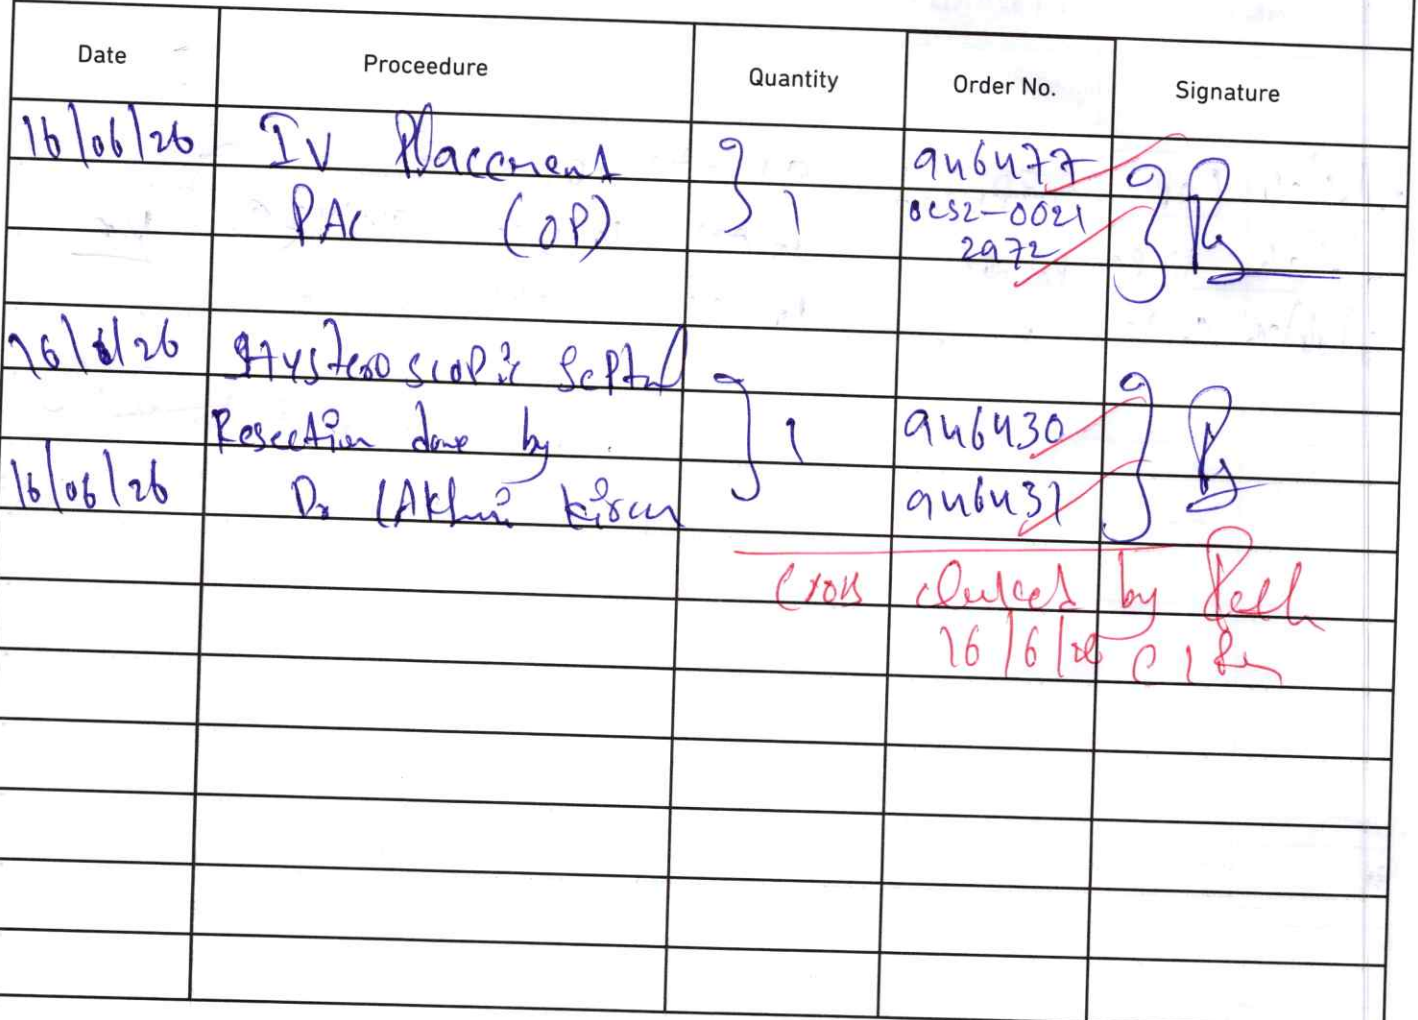 Date Proceedure Quantity Order No. Signature
16/06/26 IV Placement 946477
PAC (OP) } 1 OCS2-0021
2972
16/6/26 Hysteroscopic Septal
Resection done by } 1 946430
16/06/26 Dr 946431
Cross checked by
16/6/26